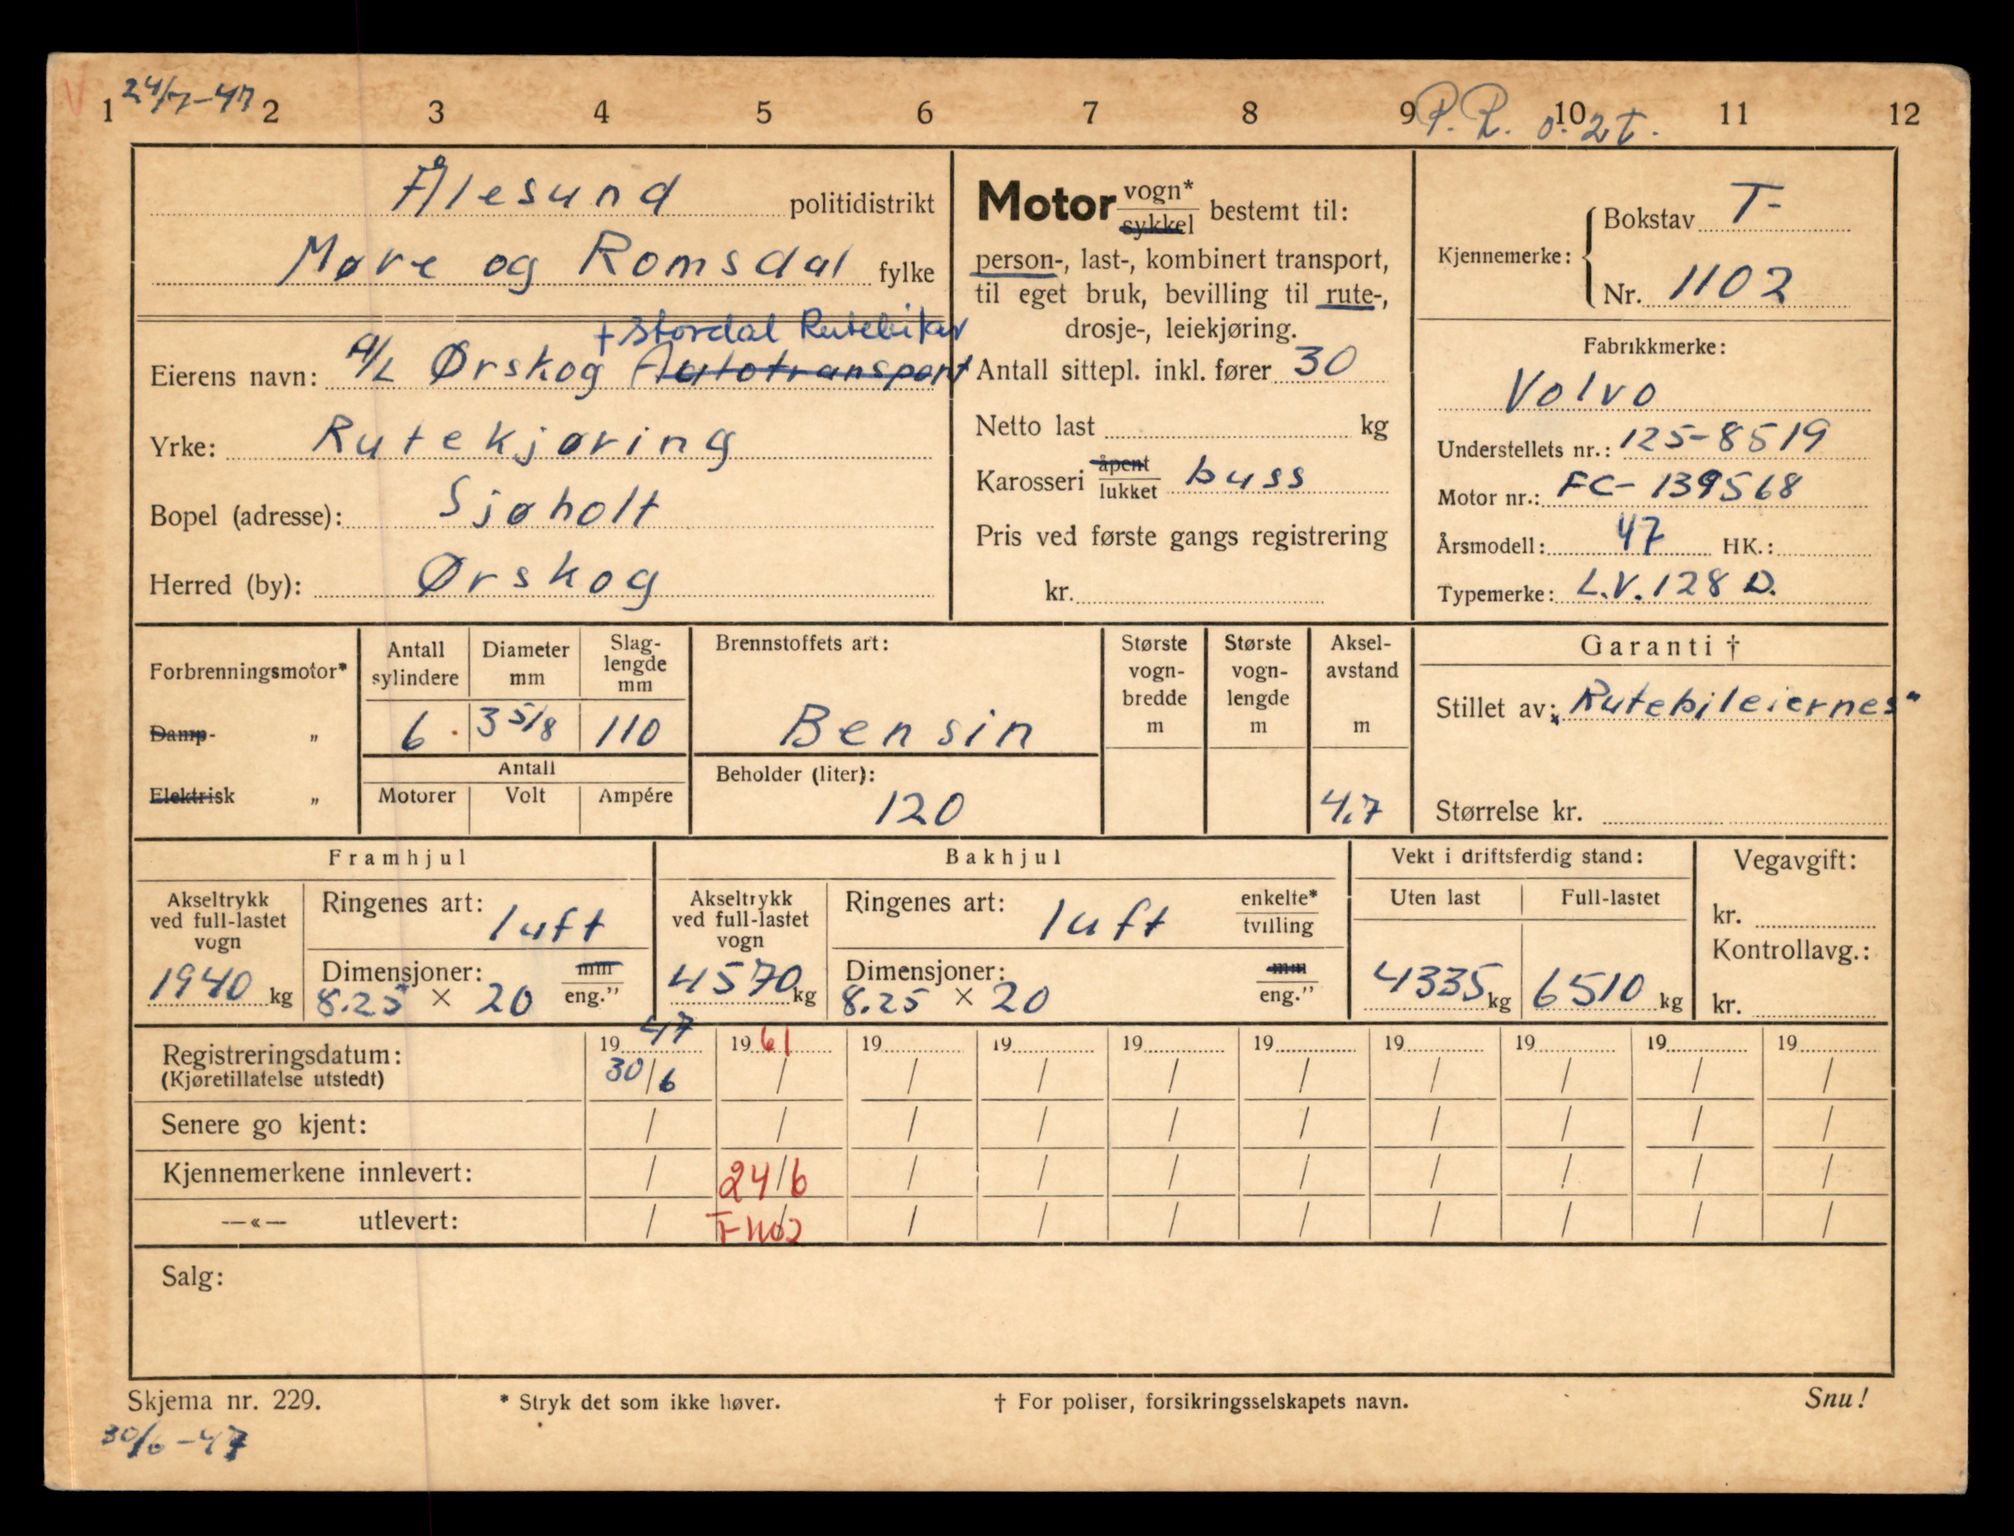 V 24/7-47
1 2 3 4 5 6 7 8 9 10 11 12
P.R. o. 2t.
Ålesund politidistrikt
Møre og Romsdal fylke
+ Stordal Rutebilar
Eierens navn: A/L Ørskog Autotransport
Yrke: Rutekjøring
Bopel (adresse): Sjøholt
Herred (by): Ørskog
Motor vogn* sykkel bestemt til:
person-, last-, kombinert transport,
til eget bruk, bevilling til rute-,
drosje-, leiekjøring.
Antall sittepl. inkl. fører 30
Netto last kg
Karosseri åpent lukket buss
Pris ved første gangs registrering
kr.
Kjennemerke: Bokstav T-
Nr. 1102
Fabrikkmerke:
Volvo
Understellets nr.: 125-8519
Motor nr.: FC-139568
Årsmodell: 47 HK.:
Typemerke: L.V. 128 D.
Forbrenningsmotor*
Damp- „
Elektrisk „
Antall sylindere 6
Diameter mm 3 5/8
Slag-lengde mm 110
Antall
Motorer Volt Ampére
Brennstoffets art:
Bensin
Beholder (liter):
120
Største vogn-bredde m
Største vogn-lengde m
Aksel-avstand m
4,7
Garanti †
Stillet av: „Rutebileiernes"
Størrelse kr.
Framhjul
Akseltrykk ved full-lastet vogn
1940 kg
Ringenes art: luft
Dimensjoner: mm
8.25 × 20 eng.”
Bakhjul
Akseltrykk ved full-lastet vogn
4570 kg
Ringenes art: luft enkelte* tvilling
Dimensjoner: mm
8.25 × 20 eng.”
Vekt i driftsferdig stand:
Uten last Full-lastet
4335 kg 6510 kg
Vegavgift:
kr.
Kontrollavg.:
kr.
Registreringsdatum: 1947 1961 19 19 19 19 19 19 19 19
(Kjøretillatelse utstedt) 30/6 / / / / / / / / /
Senere go kjent: / / / / / / / / / /
Kjennemerkene innlevert: / 24/6 / / / / / / / /
—«— utlevert: / T-1102 / / / / / / / /
Salg:
Skjema nr. 229. * Stryk det som ikke høver. † For poliser, forsikringsselskapets navn. Snu!
30/6-47